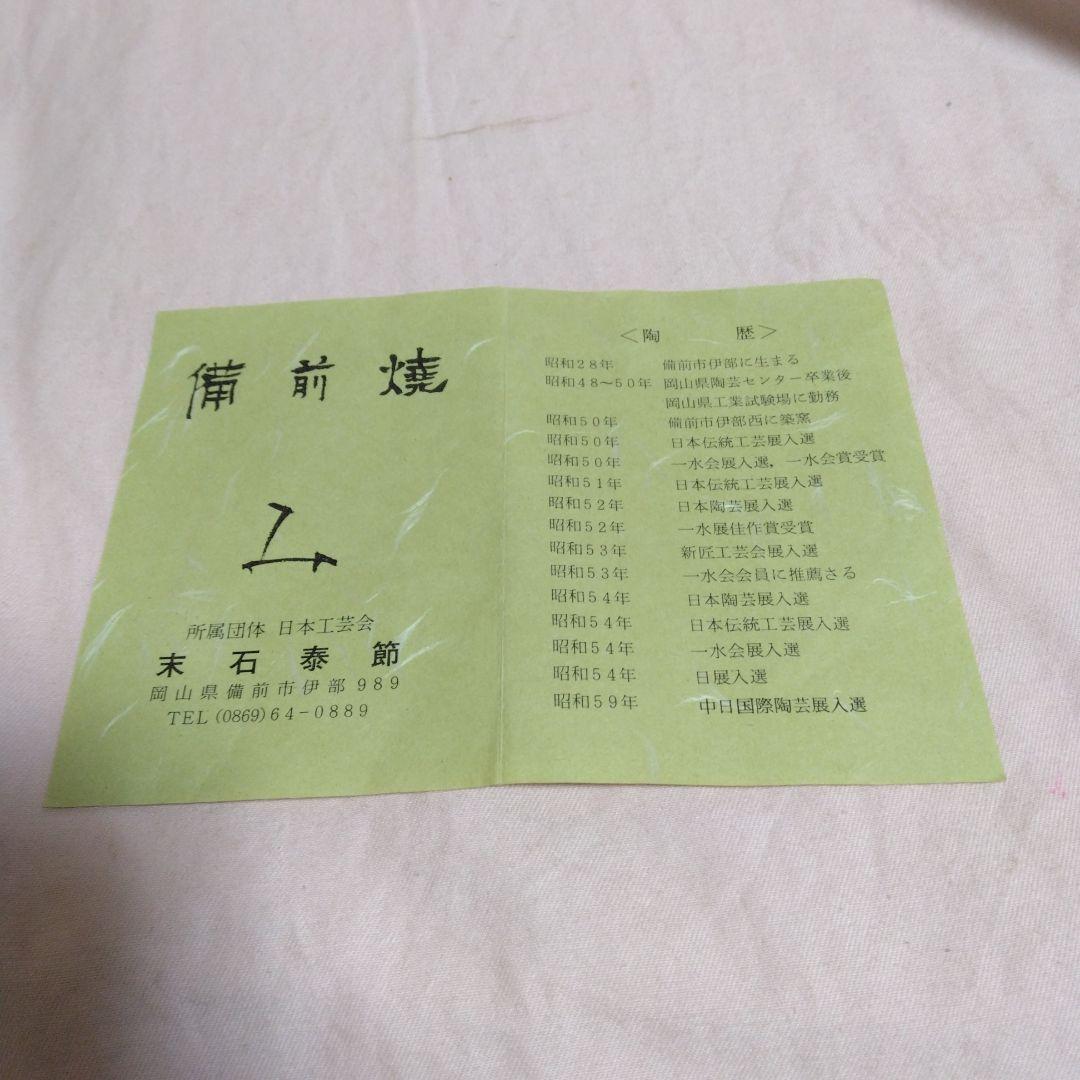 備前燒
所属団体 日本工芸会
末石泰節
岡山県備前市伊部989
TEL(0869)64-0889
<陶 歴>
昭和28年 備前市伊部に生まる
昭和48~50年 岡山県陶芸センター卒業後
岡山県工業試験場に勤務
昭和50年 備前市伊部西に築窯
昭和50年 日本伝統工芸展入選
昭和50年 一水会展入選,一水会賞受賞
昭和51年 日本伝統工芸展入選
昭和52年 日本陶芸展入選
昭和52年 一水展佳作賞受賞
昭和53年 新匠工芸会展入選
昭和53年 一水会会員に推薦さる
昭和54年 日本陶芸展入選
昭和54年 日本伝統工芸展入選
昭和54年 一水会展入選
昭和54年 日展入選
昭和59年 中日国際陶芸展入選